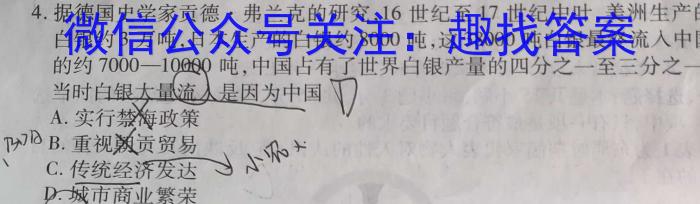 4. 据德国史学家贡德·弗兰克的研究，16 世纪至 17 世纪中叶，美洲生产的
微信公众号关注：趣找答案
的约 7000—10000 吨，中国占有了世界白银产量的四分之一至三分之一
当时白银大量流入是因为中国
A. 实行禁海政策
B. 重视朝贡贸易
C. 传统经济发达
D. 城市商业繁荣